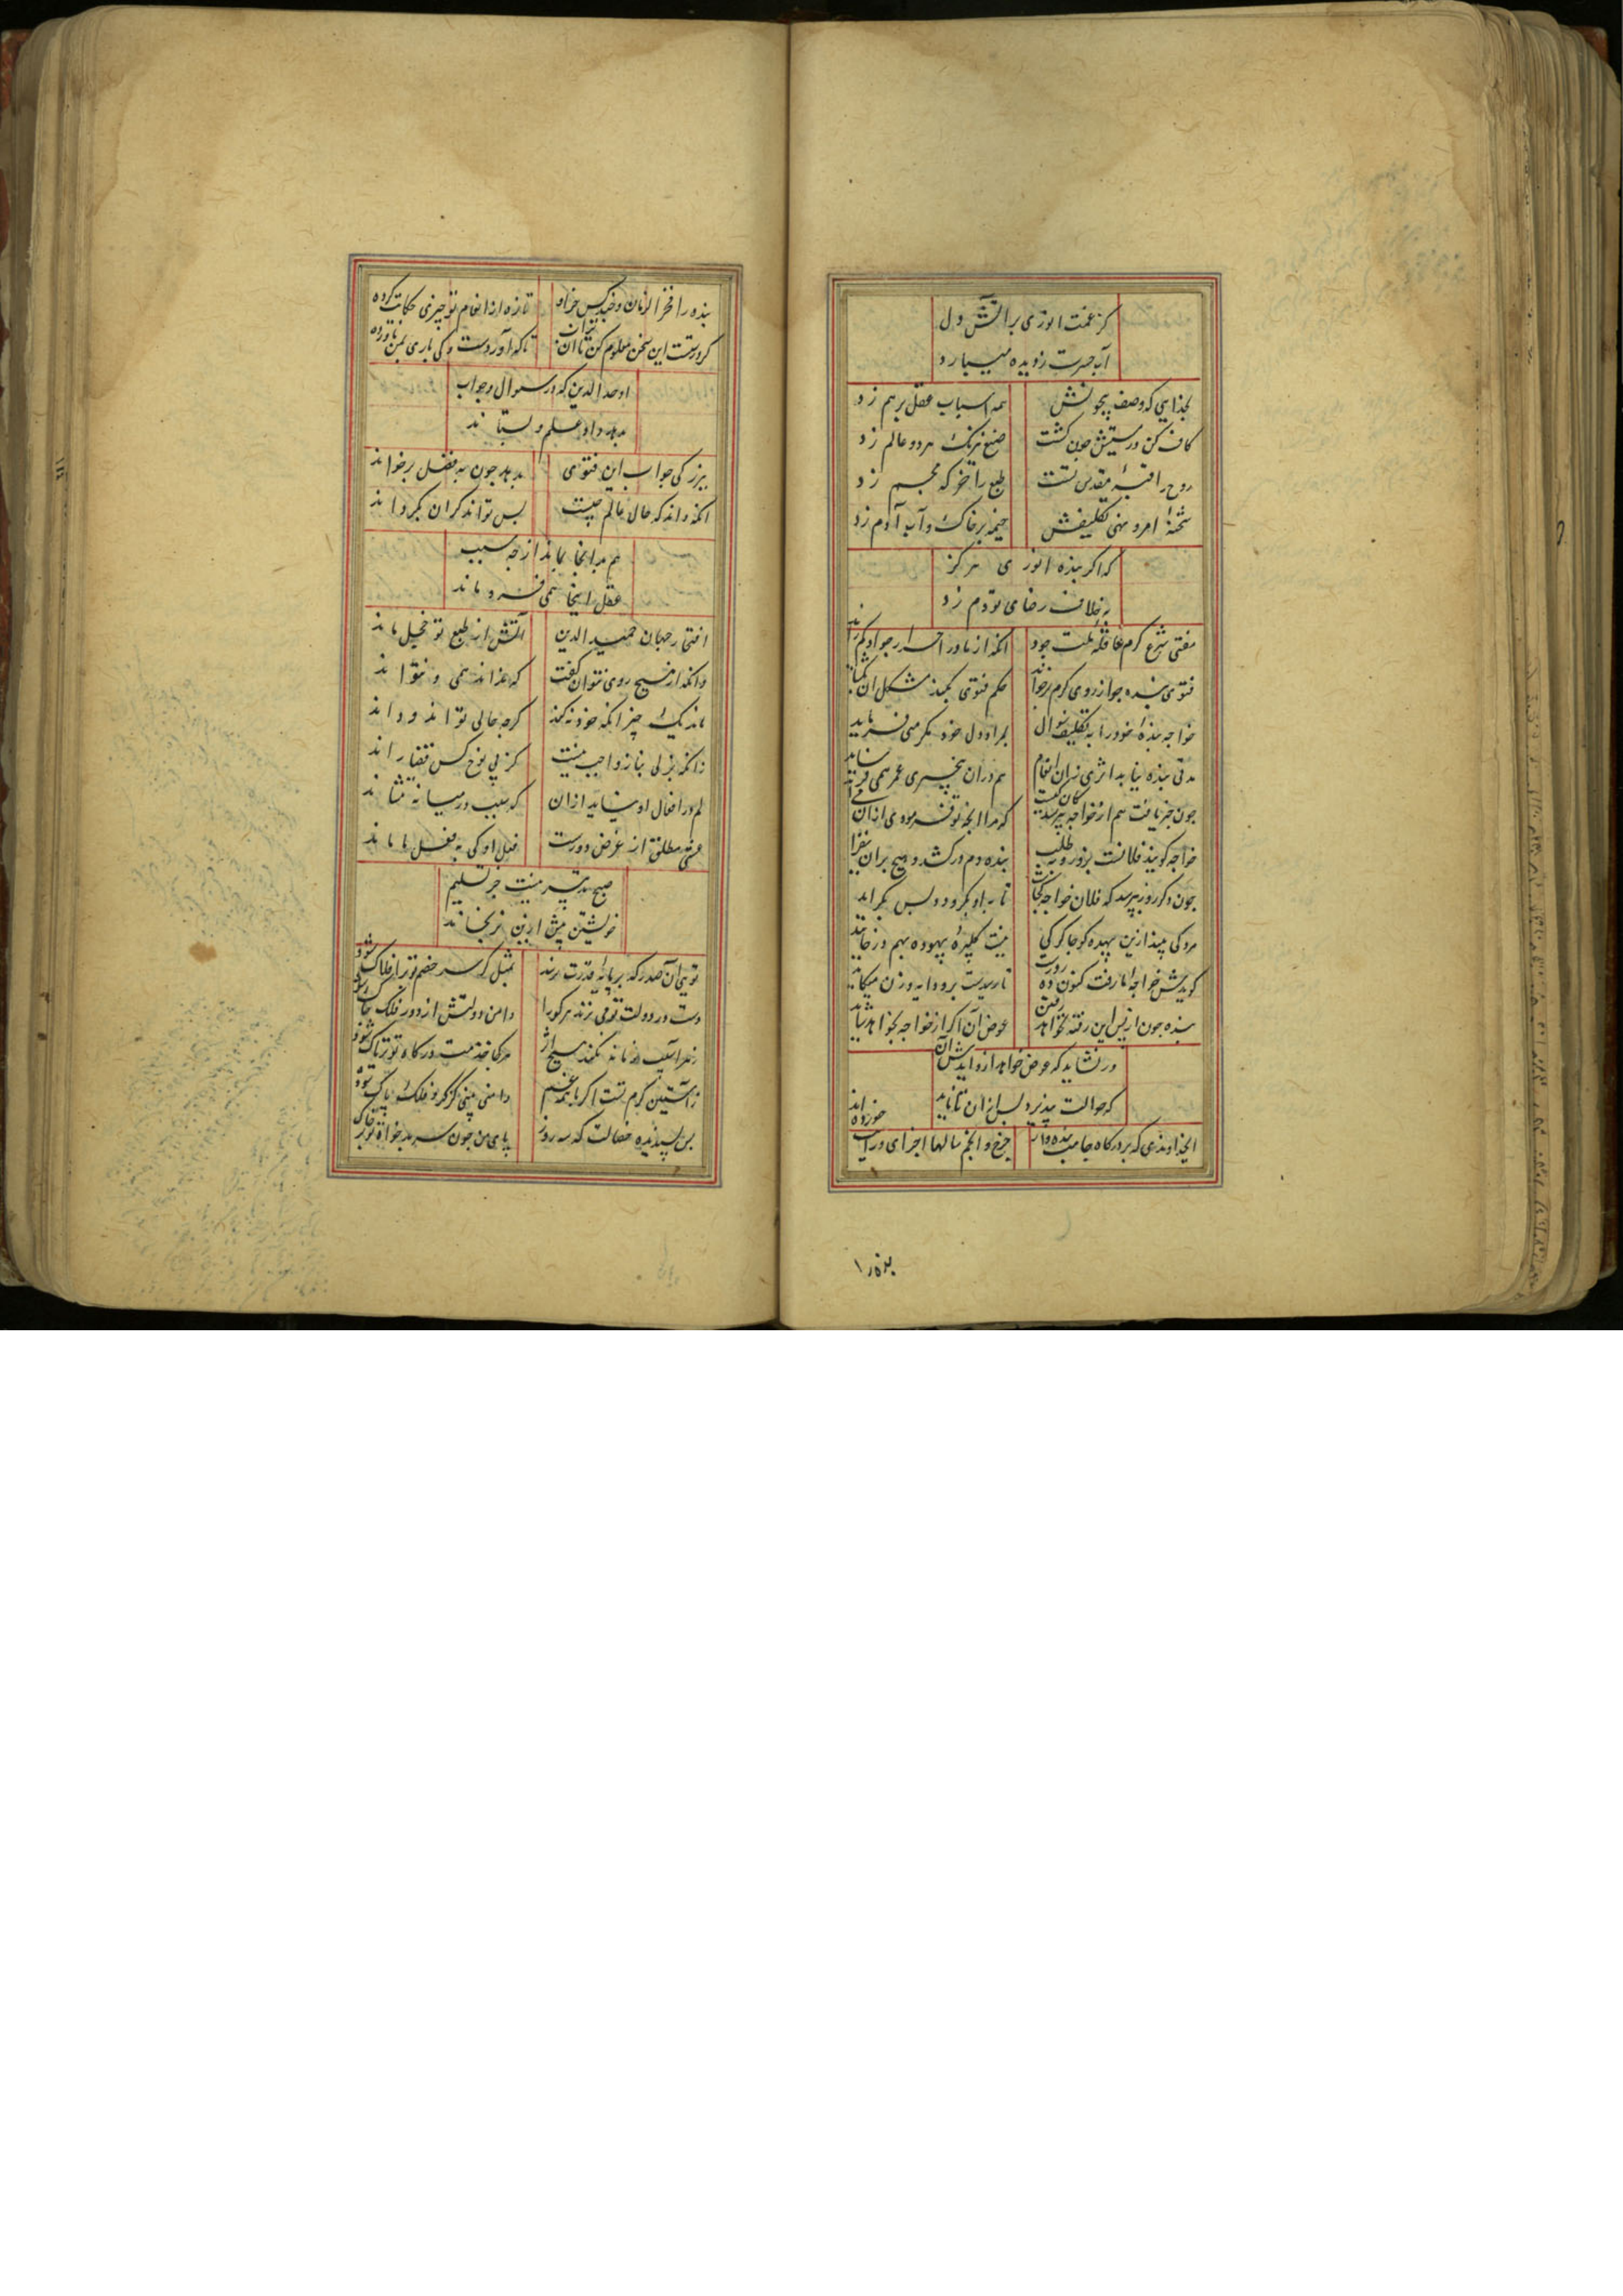 کز غمت انوری بر آتش دل
آب حسرت ز دیده میبارد
بخدایی که وصف بیچونش همه اسباب عقل برهم زد
کاف کن در مشیتش چون گشت صنع نیرنگ هر دو عالم زد
روح را قبه مقدس تست طبع را خرکه مجسم زد
شحنه امر و نهی تکلیفش خیمه بر خاک و آب آدم زد
که اگر بنده انوری هرگز
بخلاف رضای تو دم زد
مفتی شرع کرم عاقله ملت جود آنکه از مادر احرار جواد کم زاید
فتوی بنده چو از روی کرم برخواند حکم فتوی بکند مشکل آن بکشاید
خواجه بنده خود را به تکلیف سوال بمراد دل خود مکرمتی فرماید
مدتی بنده نیابد اثری زان انعام هم در آن بیخبری عمر همی فرساید
چون خبر یافت هم از خواجه بپرسید که مرا آنچه تو فرمودی از آن
خواجه گوید فلانست برو زو بطلب بنده دم درکشد و هیچ بر آن نفزاید
چون دگر روز بپرسد که فلان خواجه کجاست تا بر او گرود و پس بگراید
مردکی بیند ازین بیهده گو جاگرکی بیهوده بهم در خاید
گویدش خواجه ما رفت کنون
بنده چون از پس این رفته نخواهد رفتن عوض آن اگر از خواجه بخواهد شاید
ور نشاید که عوض خواهد ازو ایدش آن
که حوالت بپذیرد پس از آن تا ناید
ای خداوندی که بر درگاه جاهت بنده وار چرخ و انجم سالها اجزای دوران خورده اند
بنده را
بنده را فخر الزمان و خیر کس خزان تازه از انعام تو چیزی حکایت کرده
گر درست این سخن معلوم کن تا آن تا که آوردست و کی باری بمن ناورده
اوحد الدین که در سوال و جواب
بدهد داد علم و بستاند
بزرگی جواب این فتوی بدهد چون بفضل برخواند
آنکه داند که حال عالم چیست بس تواند کران بگرداند
هم بدانجا بماند از چه سبب
عقل اینجا همی فروماند
افتخار جهان حمید الدین آتش از طبع تو خجل ماند
وانکه از هیچ روی نتوان گفت که خداند همی و نتواند
ماند یک چیز آنکه خود نکند گرچه حالی تواند و داند
زانکه بذلی بناز واجب نیست کز پی نوع کس قضا راند
لم در افعال او نشاید از آن که سبب در میانه ننشاند
هستی مطلق از غرض دورست فعل او کی بفعل ما ماند
هیچ تدبیر نیست جز تسلیم
خویشتن بیش ازین نرنجاند
تویی آن صدر که بر پایه قدرت نرسد بمثل گر سر خصم تو بر افلاک شود
دست در دولت تو می نزند هر کو را دامن دولتش از دور فلک چاک شود
زهر آسیب زمانه نکند هیچ اثر هر کجا خدمت درگاه تو تریاک شود
زآستین کرم تست اگر با همه غم دامنی بینی کز گرد فلک پاک شود
بس پسندیده خصالت که سه روز بپای من چون سر بدخواه تو بر خاک